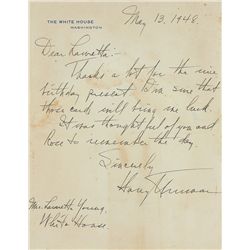 THE WHITE HOUSE
WASHINGTON
May 13, 1948.
Dear Lauretta:-
Thanks a lot for the nice
birthday present. I'm sure that
those cards will bring me luck.
It was thoughtful of you and
Rose to remember the day.
Sincerely
Harry Truman
Mrs. Lauretta Young,
White House.